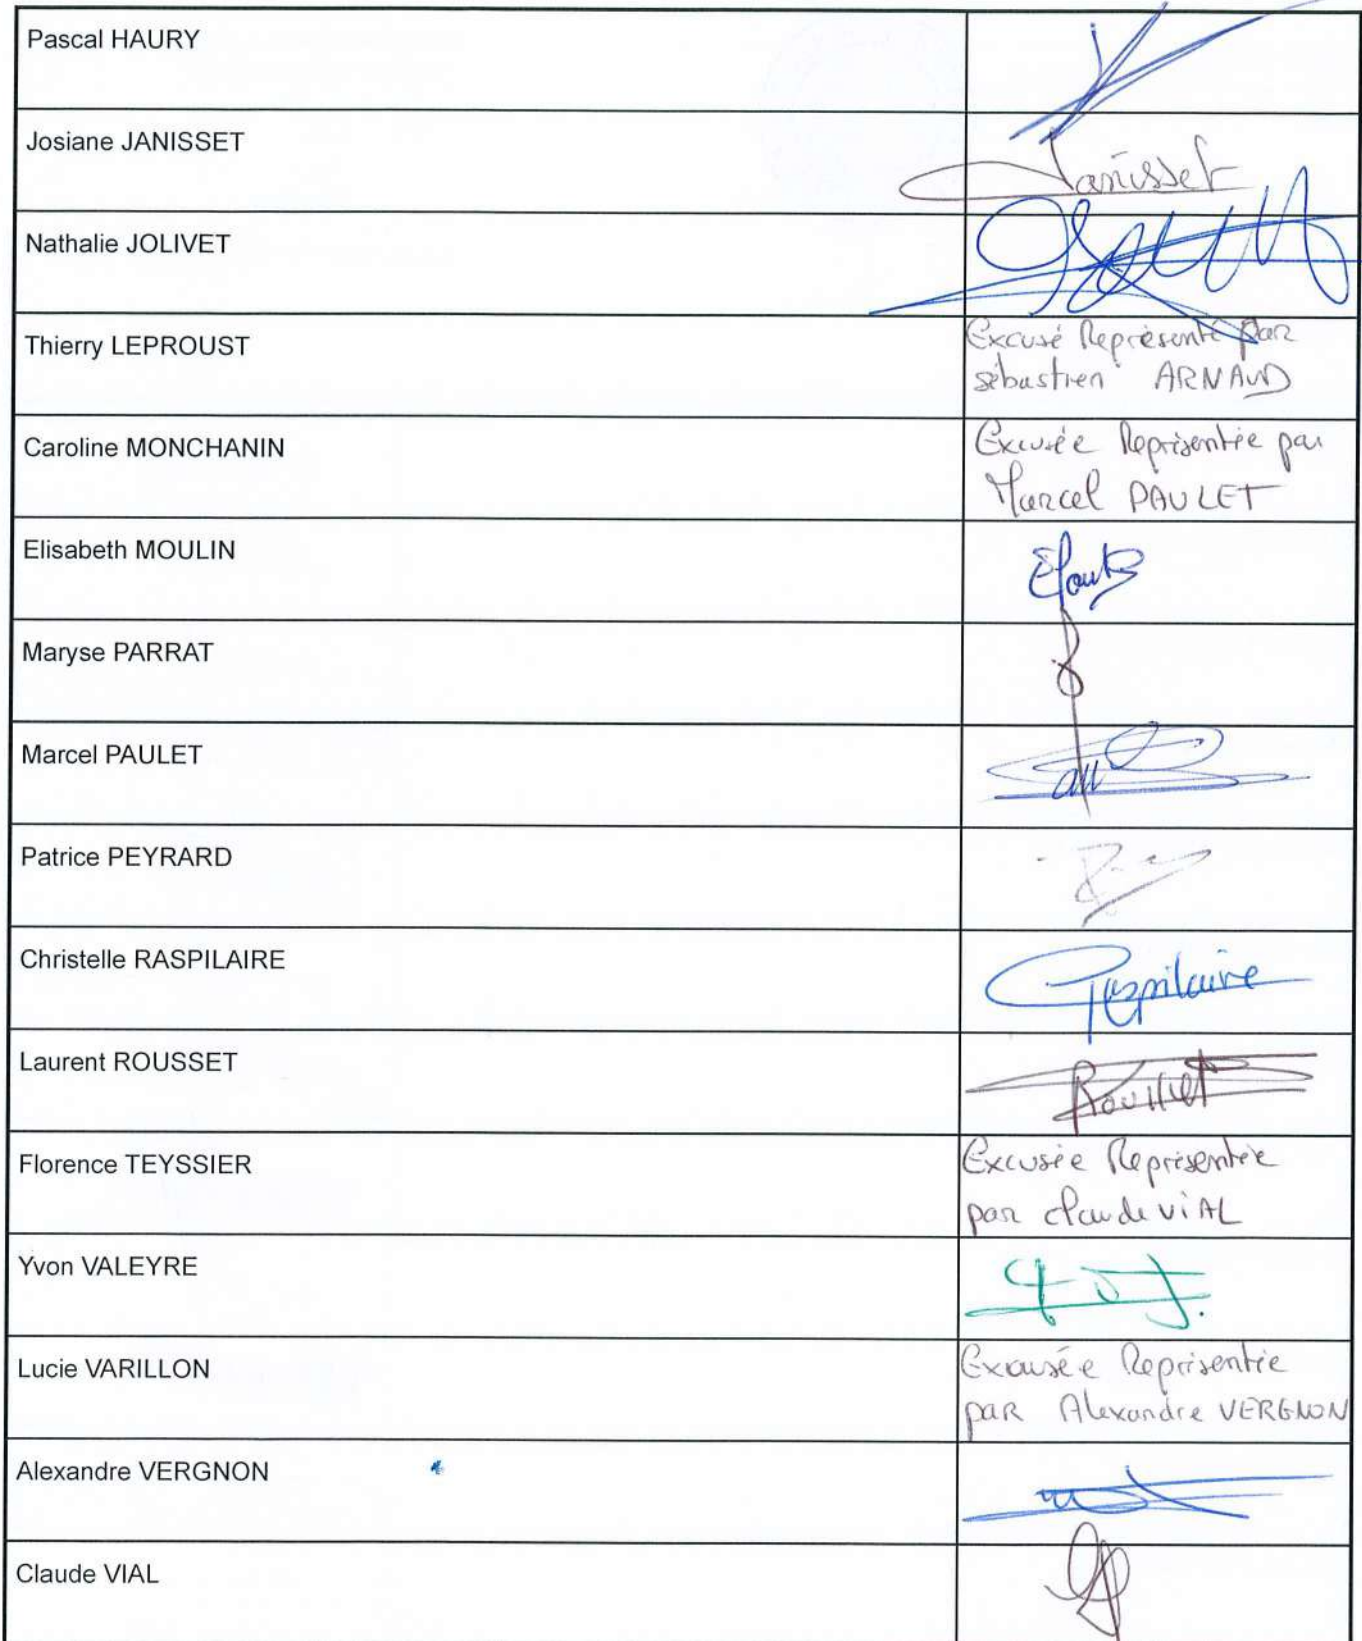 Pascal HAURY
Josiane JANISSET
Janisset
Nathalie JOLIVET
Thierry LEPROUST
Excusé Représenté par
sébastien ARNAUD
Caroline MONCHANIN
Excusée Représentée par
Marcel PAULET
Elisabeth MOULIN
Maryse PARRAT
Marcel PAULET
Patrice PEYRARD
Christelle RASPILAIRE
Raspilaire
Laurent ROUSSET
Rousset
Florence TEYSSIER
Excusée Représentée
par claude ViAL
Yvon VALEYRE
Lucie VARILLON
Excusée Représentée
paR Alexandre VERGNON
Alexandre VERGNON
Claude VIAL